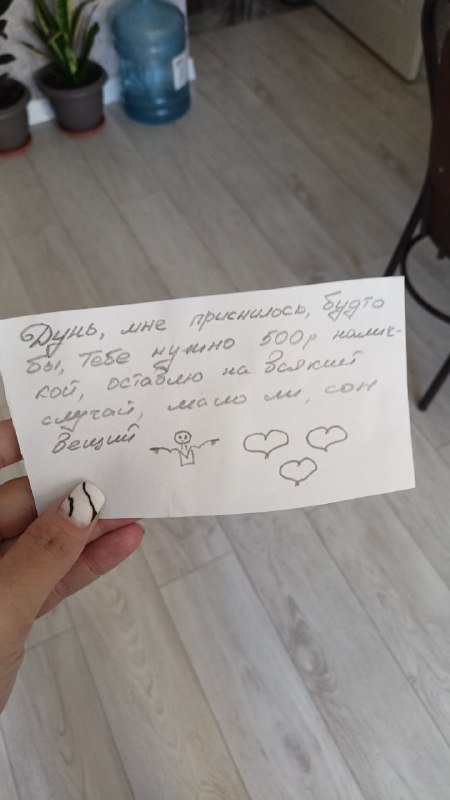 Дунь, мне приснилось, будто
бы, тебе нужно 500р налич-
кой, оставлю на всякий
случай, мало ли, сон
вещий